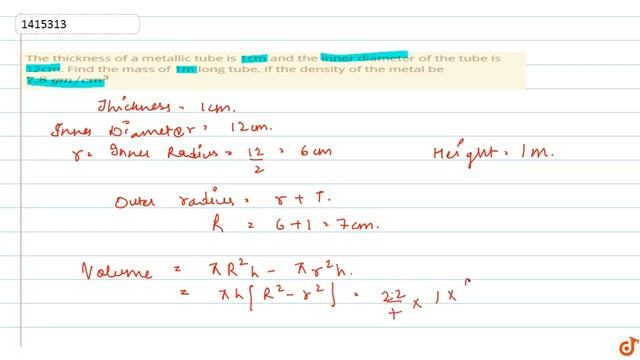 1415313
The thickness of a metallic tube is 1cm and the inner diameter of the tube is
12cm. Find the mass of 1m long tube, if the density of the metal be
7.8 gm/cm³
Thickness = 1cm.
Inner Diameter = 12cm.
r = Inner Radius = 12/2 = 6cm
Height = 1m.
Outer radius = r + T.
R = 6+1 = 7cm.
Volume = πR²h - πr²h.
= πh[R²-r²] = 22/7 × 1 ×
doubtnut